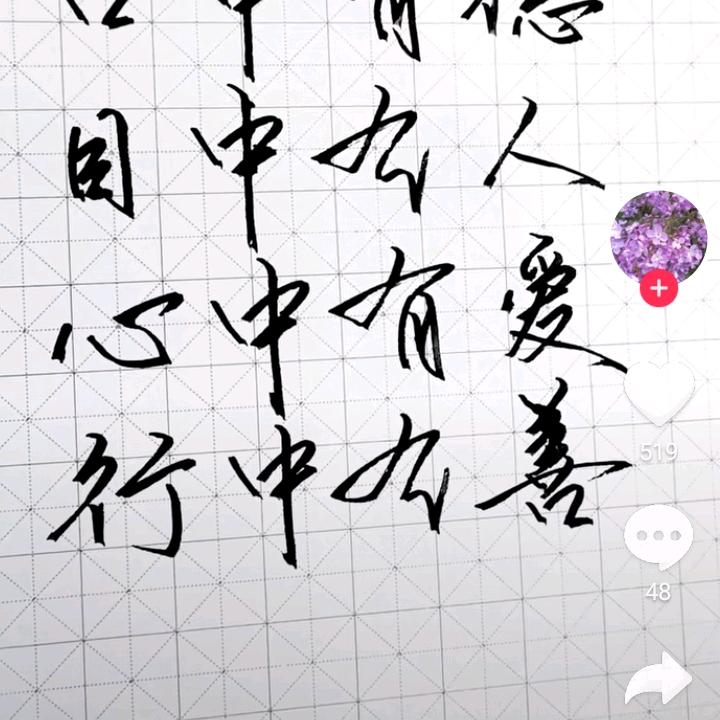 口中有德
目中有人
心中有爱
行中有善
519
48